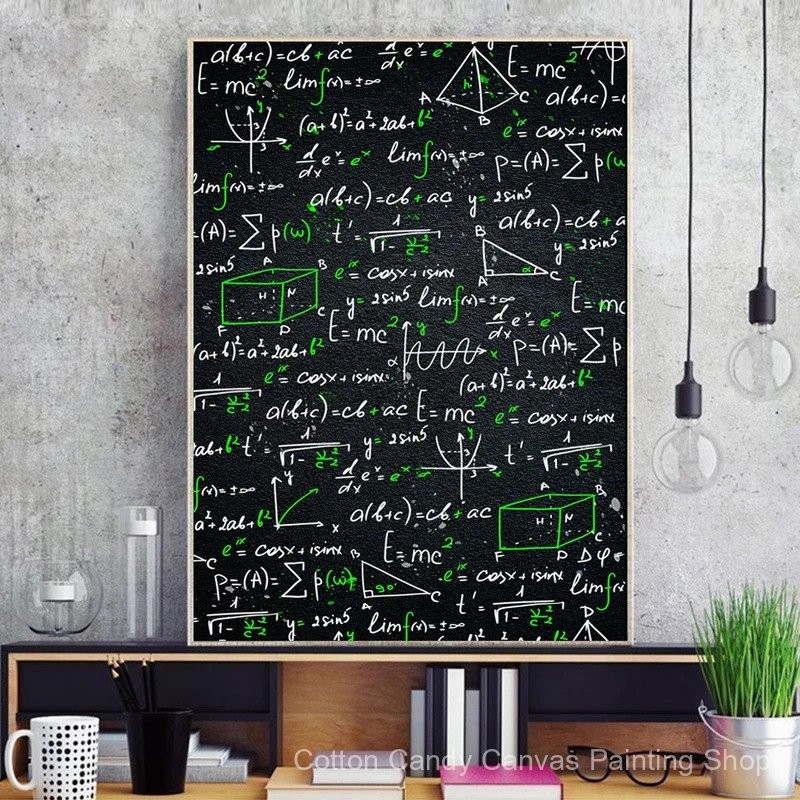 a(b+c)=cb+ac d/dx e^x=e^x E=mc²
E=mc² lim f(x)=±∞ A B C h a(b+c)=c
y 3 (a+b)²=a²+2ab+b² e^ix=cosx+isinx
d/dx e^x=e^x lim f(x)=±∞ P=(A)=∑p(ω
lim f(x)=±∞ a(b+c)=cb+ac y=2sin5 a(b+c)=cb+a
(A)=∑p(ω) t'=1/√1-v²/c² B A C α y=2sin5
2sin5 A B C D F H N e^ix=cosx+isinx
y=2sin5 lim f(x)=±∞ E=mc
E=mc² y x α d/dx e^x=e^x
(a+b)²=a²+2ab+b² P=(A)=∑p
1/√1-v²/c² e^ix=cosx+isinx (a+b)²=a²+2ab+b²
a(b+c)=cb+ac E=mc² e^ix=cosx+isinx
ab+b² t'=1/√1-v²/c² y=2sin5 y 3 t'=1/√1-v²/c²
f(x)=±∞ y x d/dx e^x=e^x
a²+2ab+b² a(b+c)=cb+ac A B D F H N
C e^ix=cosx+isinx E=mc² Δφ=
P=(A)=∑p(ω) B A C 90° e^ix=cosx+isinx lim f(x)
1/√1-v²/c² y=2sin5 lim f(x)=±∞ t'=1/√1-v²/c² D
Cotton Candy Canvas Painting Shop